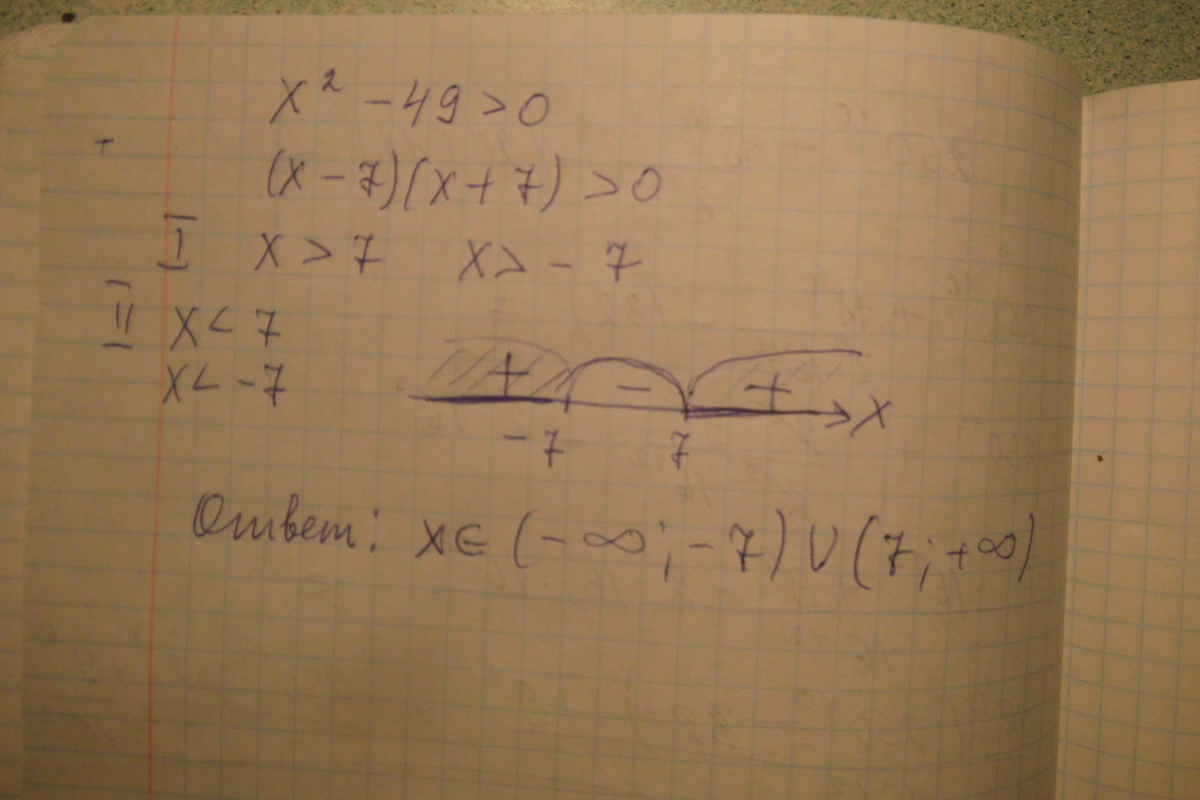 x² - 49 > 0
(x - 7)(x + 7) > 0
I x > 7 x > - 7
II x < 7
x < - 7
+ - +
-7 7 x
Ответ: x ∈ (-∞; -7) ∪ (7; +∞)